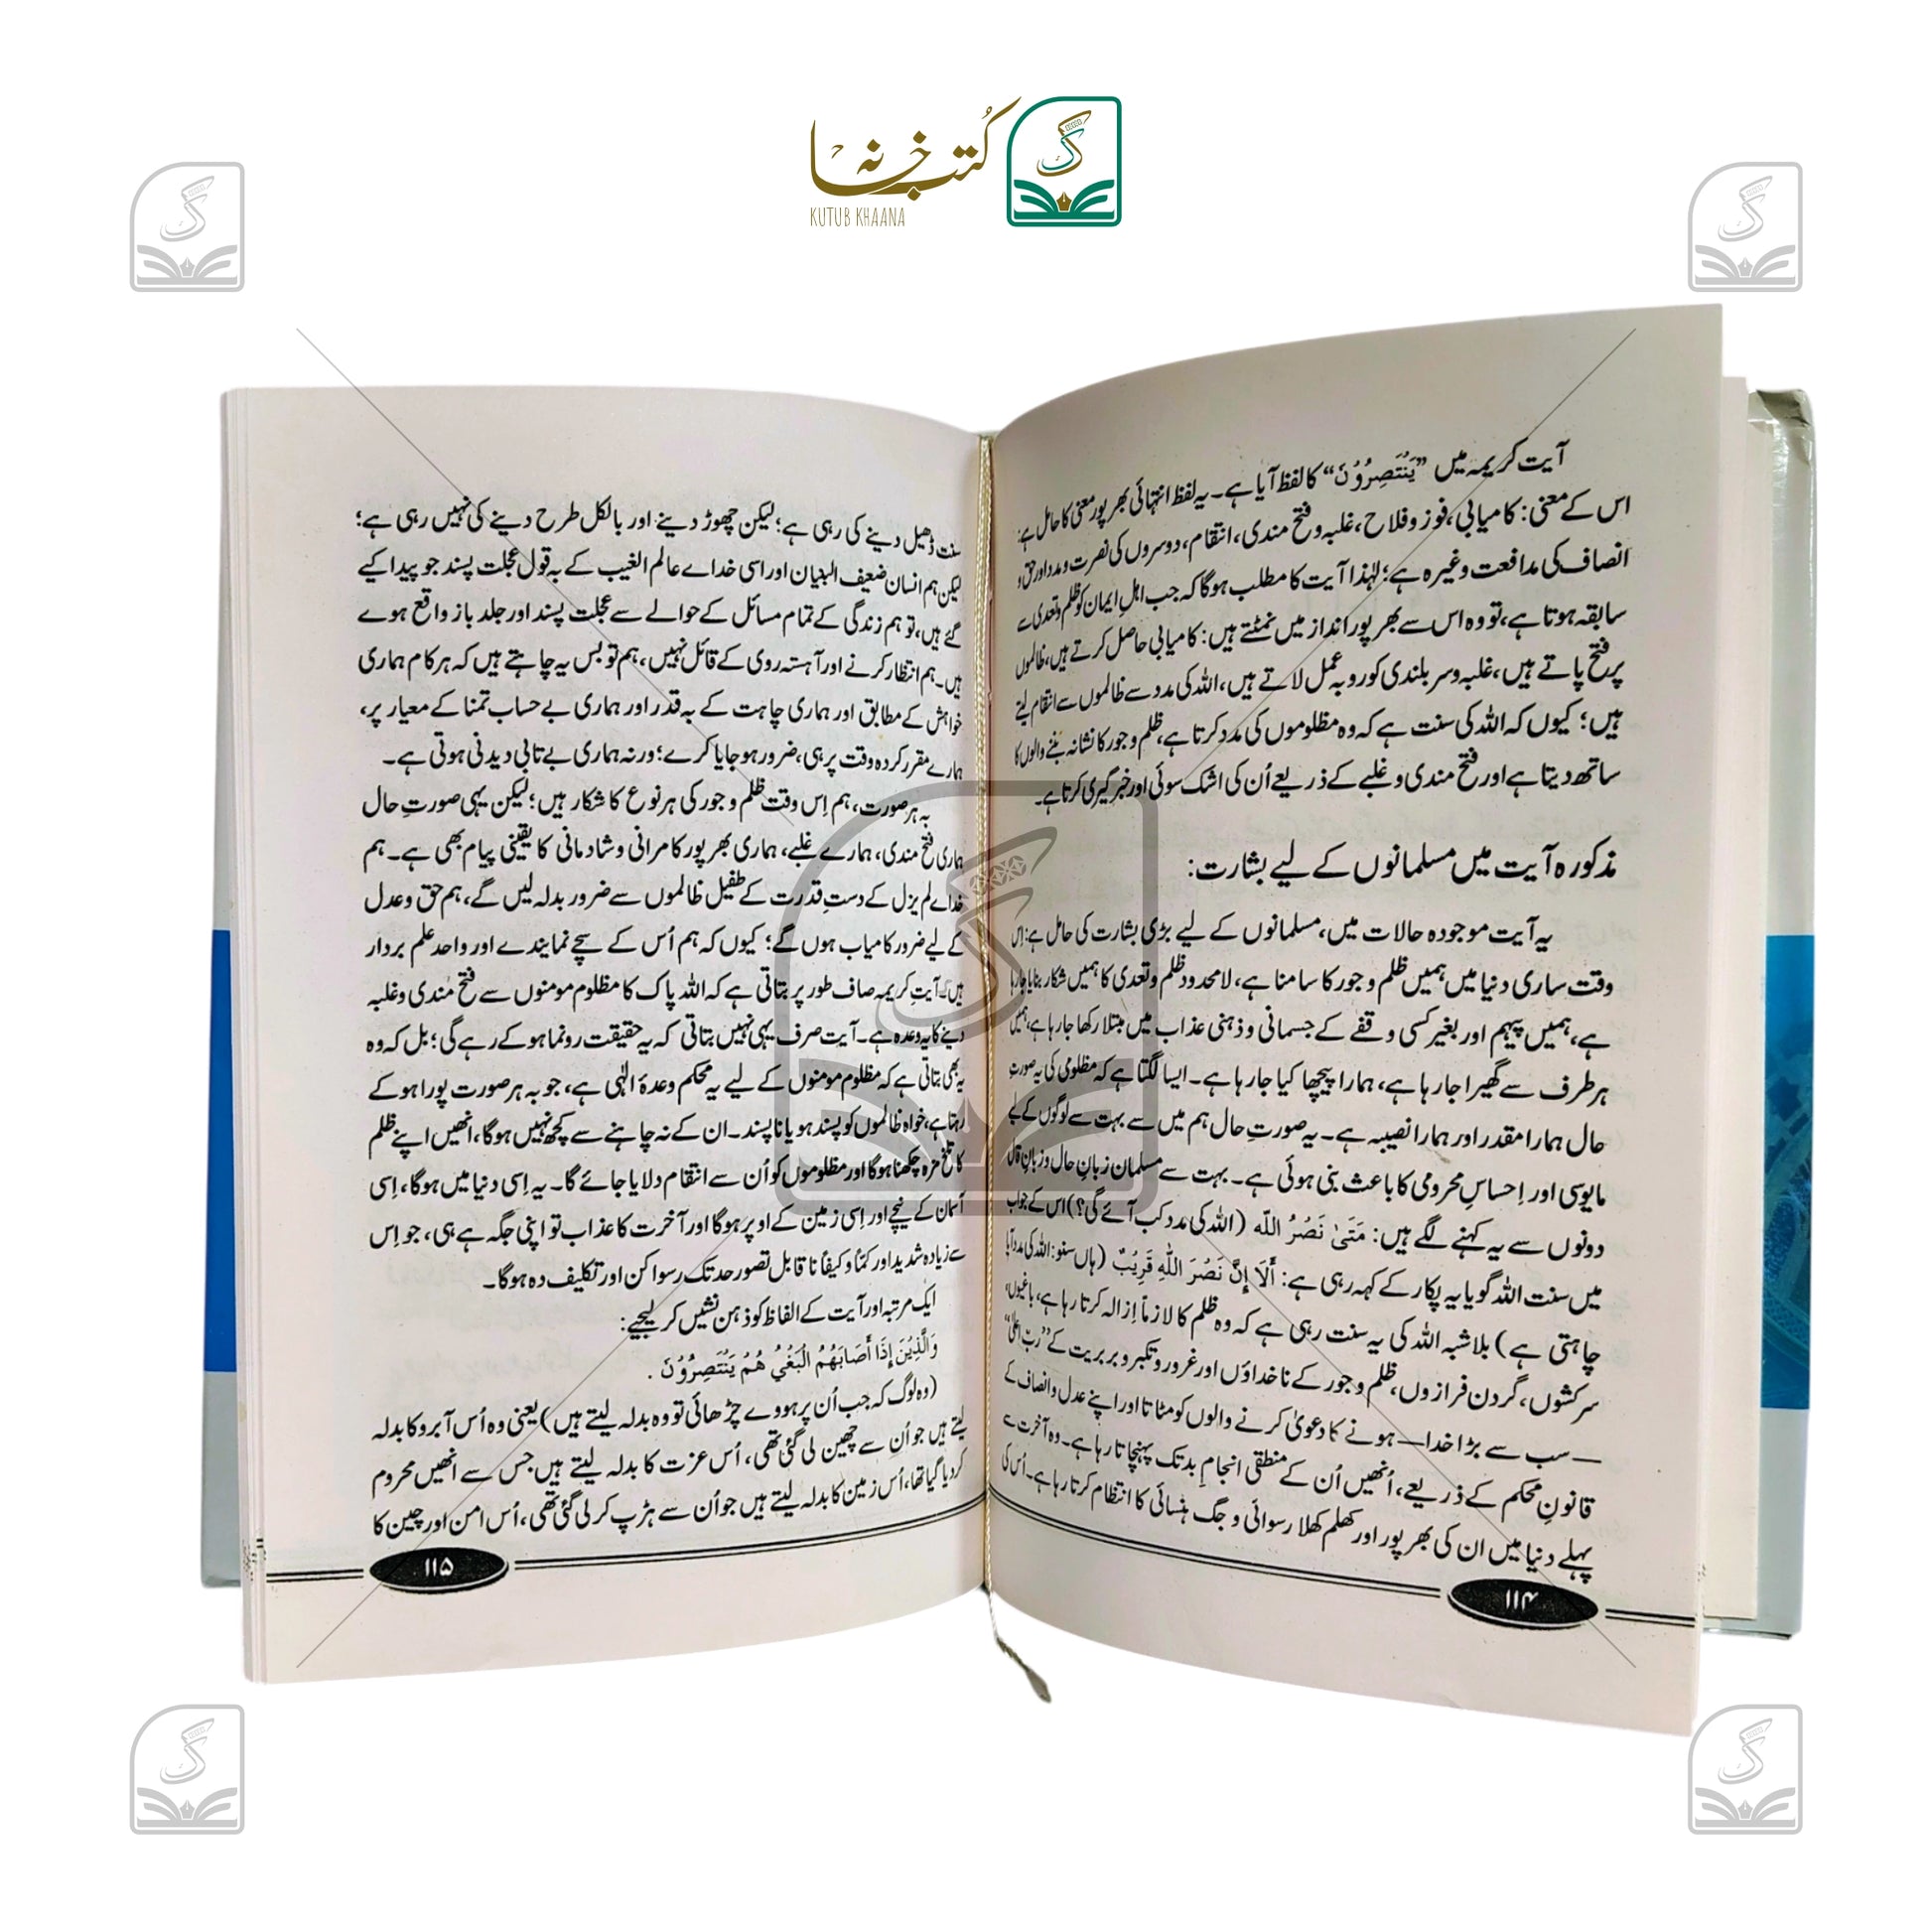 کتب خانہ
KUTUB KHAANA
آیت کریمہ میں ”یَنْتَصِرُوْنَ“ کا لفظ آیا ہے۔ یہ لفظ انتہائی بھرپور معنی کا حامل ہے:
اس کے معنی: کامیابی، فوز و فلاح، غلبہ و فتح مندی، انتقام، دوسروں کی نصرت و مدد اور حق و
انصاف کی مدافعت وغیرہ ہے؛ لہٰذا آیت کا مطلب ہوگا کہ جب اہلِ ایمان کو ظلم و تعدی سے
سابقہ ہوتا ہے، تو وہ اس سے بھرپور انداز میں نمٹتے ہیں: کامیابی حاصل کرتے ہیں، ظالموں
پر فتح پاتے ہیں، غلبہ و سربلندی کو روبہ عمل لاتے ہیں، اللہ کی مدد سے ظالموں سے انتقام لیتے
ہیں؛ کیوں کہ اللہ کی سنت ہے کہ وہ مظلوموں کی مدد کرتا ہے، ظلم و جور کا نشانہ بننے والوں کا
ساتھ دیتا ہے اور فتح مندی و غلبے کے ذریعے اُن کی اشک سوئی اور خبرگیری کرتا ہے۔
مذکورہ آیت میں مسلمانوں کے لیے بشارت:
یہ آیت موجودہ حالات میں، مسلمانوں کے لیے بڑی بشارت کی حامل ہے: اِس
وقت ساری دنیا میں ہمیں ظلم و جور کا سامنا ہے، لامحدود ظلم و تعدی کا ہمیں شکار بنایا جا رہا
ہے، ہمیں پیہم اور بغیر کسی وقفے کے جسمانی و ذہنی عذاب میں مبتلا رکھا جا رہا ہے، ہمیں
ہر طرف سے گھیرا جا رہا ہے، ہمارا پیچھا کیا جا رہا ہے۔ ایسا لگتا ہے کہ مظلومی کی یہ صورتِ
حال ہمارا مقدر اور ہمارا نصیبہ ہے۔ یہ صورتِ حال ہم میں سے بہت سے لوگوں کے لیے
مایوسی اور اِحساسِ محرومی کا باعث بنی ہوئی ہے۔ بہت سے مسلمان زبانِ حال و زبانِ قال
دونوں سے یہ کہنے لگے ہیں: مَتَیٰ نَصْرُ اللّٰہ (اللہ کی مدد کب آئے گی؟) اس کے جواب
میں سنت اللہ گویا یہ پکار کے کہہ رہی ہے: أَلَا إِنَّ نَصْرَ اللّٰهِ قَرِيْبٌ (ہاں سنو: اللہ کی مدد آیا
چاہتی ہے) بلاشبہ اللہ کی یہ سنت رہی ہے کہ وہ ظلم کا لازماً اِزالہ کرتا رہا ہے، باغیوں،
سرکشوں، گردن فرازوں، ظلم و جور کے ناخداؤں اور غرور و تکبر و بربریت کے ”ربِ اعلیٰ“
— سب سے بڑا خدا — ہونے کا دعویٰ کرنے والوں کو مٹاتا اور اپنے عدل و انصاف کے
قانونِ محکم کے ذریعے، اُنھیں اُن کے منطقی انجامِ بد تک پہنچاتا رہا ہے۔ وہ آخرت سے
پہلے دنیا میں ان کی بھرپور اور کھلم کھلا رسوائی و جگ ہنسائی کا انتظام کرتا رہا ہے۔ اُس کی
۱۱۴
سنت ڈھیل دینے کی رہی ہے؛ لیکن چھوڑ دینے اور بالکل طرح دینے کی نہیں رہی ہے؛
لیکن ہم انسان ضعیف البنیان اور اسی خداے عالم الغیب کے بہ قول عجلت پسند جو پیدا کیے
گئے ہیں، تو ہم زندگی کے تمام مسائل کے حوالے سے عجلت پسند اور جلد باز واقع ہوے
ہیں۔ ہم انتظار کرنے اور آہستہ روی کے قائل نہیں، ہم تو بس یہ چاہتے ہیں کہ ہر کام ہماری
خواہش کے مطابق اور ہماری چاہت کے بہ قدر اور ہماری بے حساب تمنا کے معیار پر،
ہمارے مقرر کردہ وقت پر ہی، ضرور ہو جایا کرے؛ ورنہ ہماری بے تابی دیدنی ہوتی ہے۔
بہ ہر صورت، ہم اِس وقت ظلم و جور کی ہر نوع کا شکار ہیں؛ لیکن یہی صورتِ حال
ہماری فتح مندی، ہمارے غلبے، ہماری بھرپور کامرانی و شادمانی کا یقینی پیام بھی ہے۔ ہم
خداے لم یزل کے دستِ قدرت کے طفیل ظالموں سے ضرور بدلہ لیں گے، ہم حق و عدل
کے لیے ضرور کامیاب ہوں گے؛ کیوں کہ ہم اُس کے سچے نمایندے اور واحد علم بردار
ہیں۔ آیت کریمہ صاف طور پر بتاتی ہے کہ اللہ پاک کا مظلوم مومنوں سے فتح مندی و غلبہ
دینے کا یہ وعدہ ہے۔ آیت صرف یہی نہیں بتاتی کہ یہ حقیقت رونما ہو کے رہے گی؛ بل کہ وہ
یہ بھی بتاتی ہے کہ مظلوم مومنوں کے لیے یہ محکم وعدۂ الٰہی ہے، جو بہ ہر صورت پورا ہو کے
رہتا ہے، خواہ ظالموں کو پسند ہو یا ناپسند۔ ان کے نہ چاہنے سے کچھ نہیں ہوگا، انھیں اپنے ظلم
کا تلخ مزہ چکھنا ہوگا اور مظلوموں کو اُن سے انتقام دلایا جائے گا۔ یہ اِسی دنیا میں ہوگا، اِسی
آسمان کے نیچے اور اِسی زمین کے اوپر ہوگا اور آخرت کا عذاب تو اپنی جگہ ہے ہی، جو اِس
سے زیادہ شدید اور کمّاً و کیفاً ناقابل تصور حد تک رسوا کن اور تکلیف دہ ہوگا۔
ایک مرتبہ اور آیت کے الفاظ کو ذہن نشیں کر لیجیے:
وَالَّذِيْنَ إِذَا أَصَابَهُمُ الْبَغْيُ هُمْ يَنْتَصِرُوْنَ .
(وہ لوگ کہ جب اُن پر ہووے چڑھائی تو وہ بدلہ لیتے ہیں) یعنی وہ اُس آبرو کا بدلہ
لیتے ہیں جو اُن سے چھین لی گئی تھی، اُس عزت کا بدلہ لیتے ہیں جس سے انھیں محروم
کر دیا گیا تھا، اُس زمین کا بدلہ لیتے ہیں جو اُن سے ہڑپ کر لی گئی تھی، اُس امن اور چین کا
۱۱۵